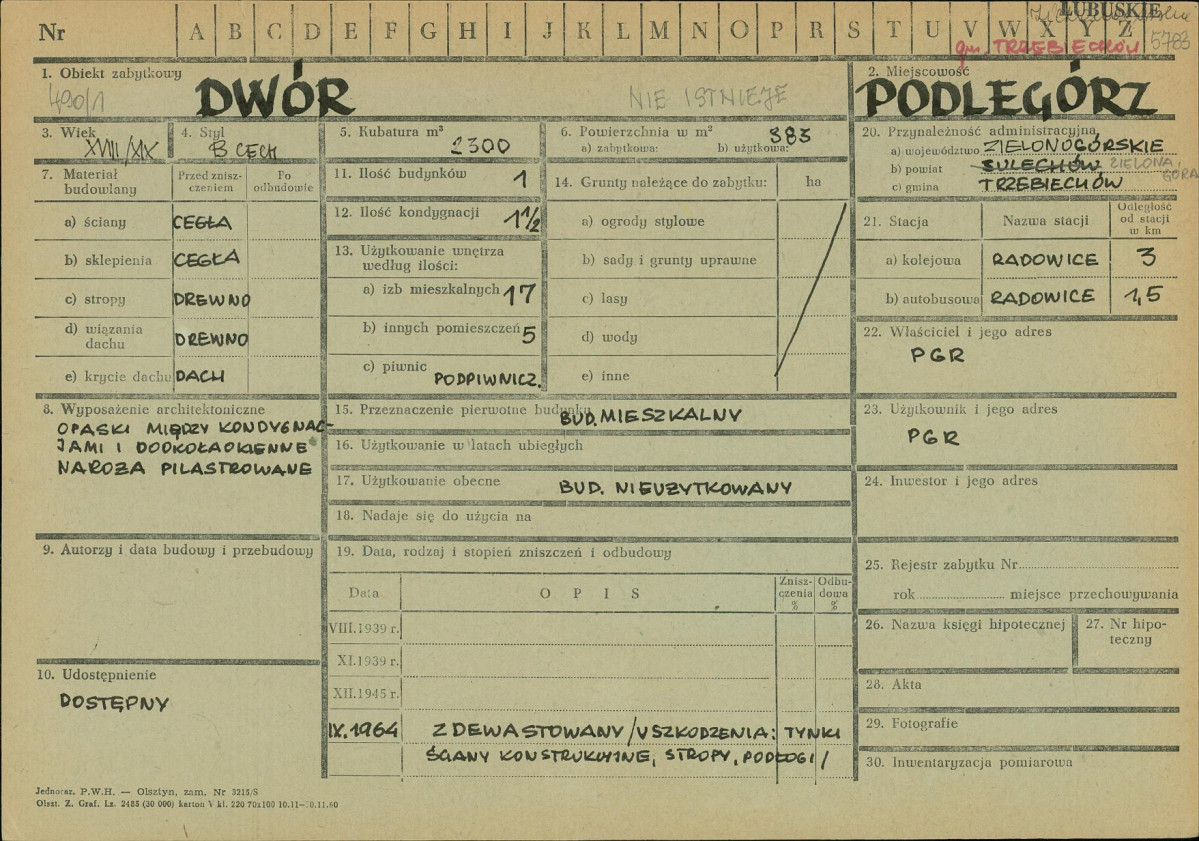 Nr A B C D E F G H I J K L M N O P R S T U V W X Y Z
LUBUSKIE
5783
gm. TRZEBIECHÓW
1. Obiekt zabytkowy
490/1
DWÓR
NIE ISTNIEJE
2. Miejscowość
PODLEGÓRZ
3. Wiek
XVIII/XIX
4. Styl
B CECH
5. Kubatura m³
2300
6. Powierzchnia w m²
a) zabytkowa: b) użytkowa: 383
7. Materiał budowlany
Przed zniszczeniem
Po odbudowie
a) ściany CEGŁA
b) sklepienia CEGŁA
c) stropy DREWNO
d) wiązania dachu DREWNO
e) krycie dachu DACH
8. Wyposażenie architektoniczne
OPASKI MIĘDZY KONDYGNAC-
JAMI I DOOKOŁAOKIENNE
NAROŻA PILASTROWANE
9. Autorzy i data budowy i przebudowy
10. Udostępnienie
DOSTĘPNY
11. Ilość budynków 1
12. Ilość kondygnacji 1 1/2
13. Użytkowanie wnętrza
według ilości:
a) izb mieszkalnych 17
b) innych pomieszczeń 5
c) piwnic PODPIWNICZ.
14. Grunty należące do zabytku: ha
a) ogrody stylowe
b) sady i grunty uprawne
c) lasy
d) wody
e) inne
15. Przeznaczenie pierwotne budynku BUD. MIESZKALNY
16. Użytkowanie w latach ubiegłych
17. Użytkowanie obecne BUD. NIEUŻYTKOWANY
18. Nadaje się do użycia na
19. Data, rodzaj i stopień zniszczeń i odbudowy
Data
O P I S
Zniszczenia %
Odbudowa %
VIII.1939 r.
XI.1939 r.
XII.1945 r.
IX.1964 ZDEWASTOWANY /USZKODZENIA: TYNKI
ŚCIANY KONSTRUKCYJNE, STROPY, PODŁOGI/
20. Przynależność administracyjna
a) województwo ZIELONOGÓRSKIE
b) powiat SULECHÓW ZIELONA GÓRA
c) gmina TRZEBIECHÓW
21. Stacja
Nazwa stacji
Odległość od stacji w km
a) kolejowa RADOWICE 3
b) autobusowa RADOWICE 1,5
22. Właściciel i jego adres
PGR
23. Użytkownik i jego adres
PGR
24. Inwestor i jego adres
25. Rejestr zabytku Nr
rok miejsce przechowywania
26. Nazwa księgi hipotecznej
27. Nr hipo-
teczny
28. Akta
29. Fotografie
30. Inwentaryzacja pomiarowa
Jednoraz. P.W.H. — Olsztyn, zam. Nr 3215/S
Olszt. Z. Graf. Lz. 2485 (30 000) karton V kl. 220 70x100 10.11—